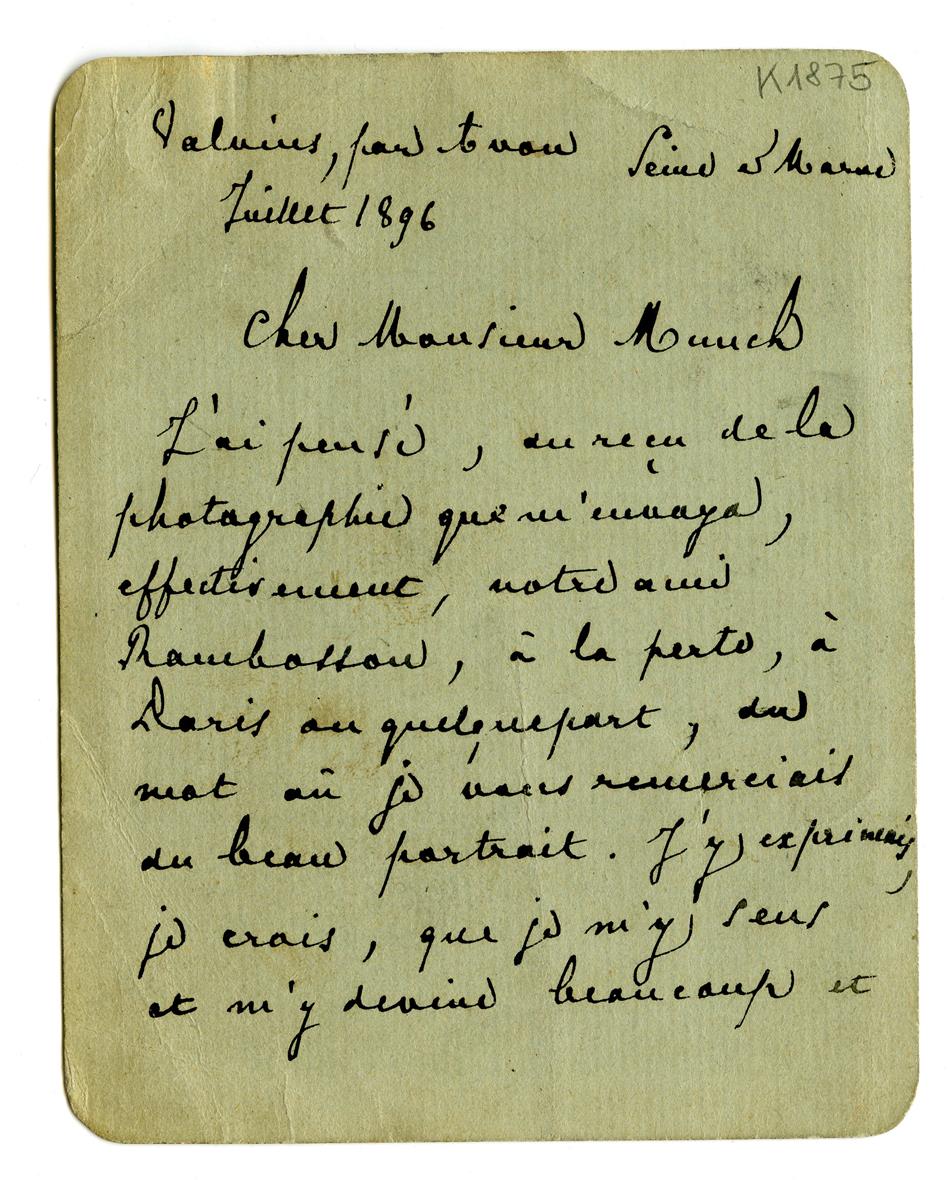 K1875
Valvins, par Avon Seine & Marne
Juillet 1896
Cher Monsieur Munch
J'ai pensé, au reçu de la
photographie que m'envoya,
effectivement, notre ami
Rambosson, à la perte, à
Paris ou quelquepart, du
mot où je vous remerciais
du beau portrait. J'y exprimais,
je crois, que je m'y sens
et m'y devine beaucoup et